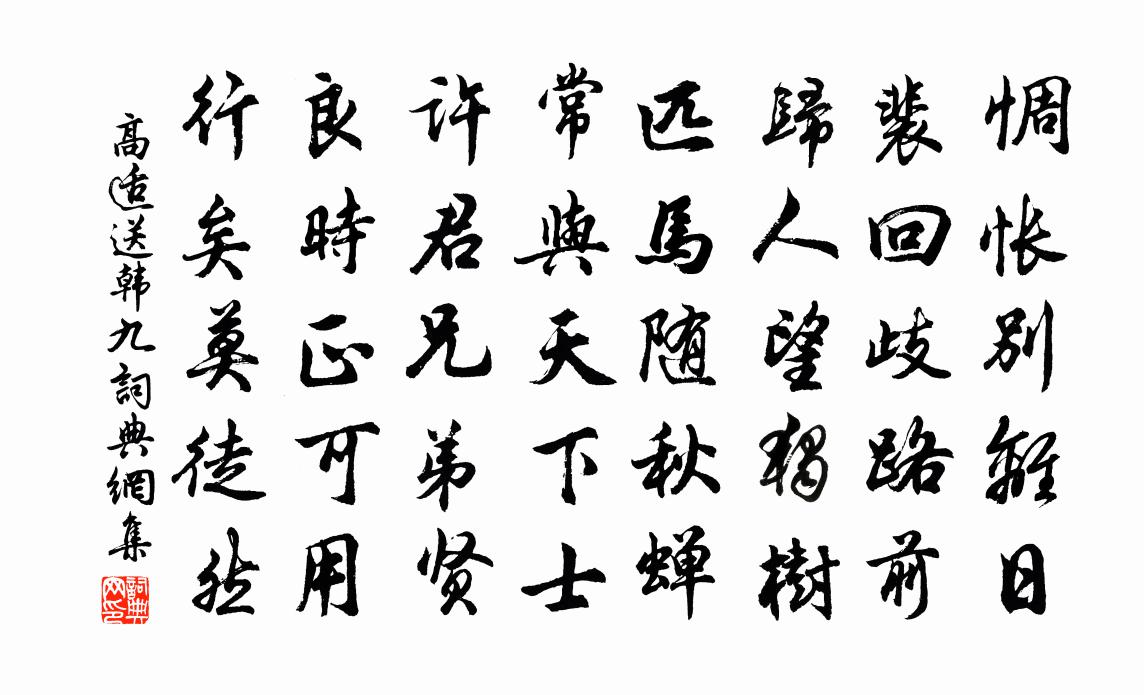 惆怅别離日
裴回歧路前
歸人望獨樹
匹馬随秋蝉
常與天下士
許君兄弟贤
良時正可用
行矣莫徒然
高适送韩九詞典網集
詞典网印